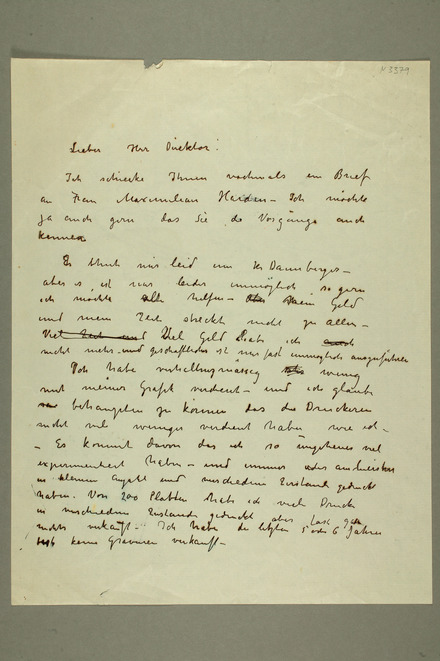 N 3379
Lieber Herr Direktor!
Ich schicke Ihnen nochmals ein Brief
an Frau Maximilian Harden – Ich möchte
ja auch gern das Sie die Vorgänge auch
kennen
Es thut mir leid um Hr Dannberger –
aber es ist mir leider unmöglich so gern
ich möchte zu helfen – Mein Geld
und meine Zeit streckt nicht zu allen –
Viel Geld habe ich
nicht mehr – und geschäftliches ist mir fast unmöglich auszuführen
Ich habe verhältnismässig wenig
mit meiner Grafik verdient – und ich glaube
behaupten zu können das die Druckeren
nicht viel weniger verdient haben wie ich –
– Es kommt davon das ich so ungeheues viel
experimentiert habe – und immer
in kleinen Anzahl und verschiedene Zustand gedruckt
haben. Von 200 Platten habe ich viele Drucke
in verschiedene Zustande gedruckt aber fast gar
nichts verkauft – Ich habe die letzten 5 oder 6 Jahre
keine Gravuren verkauft –